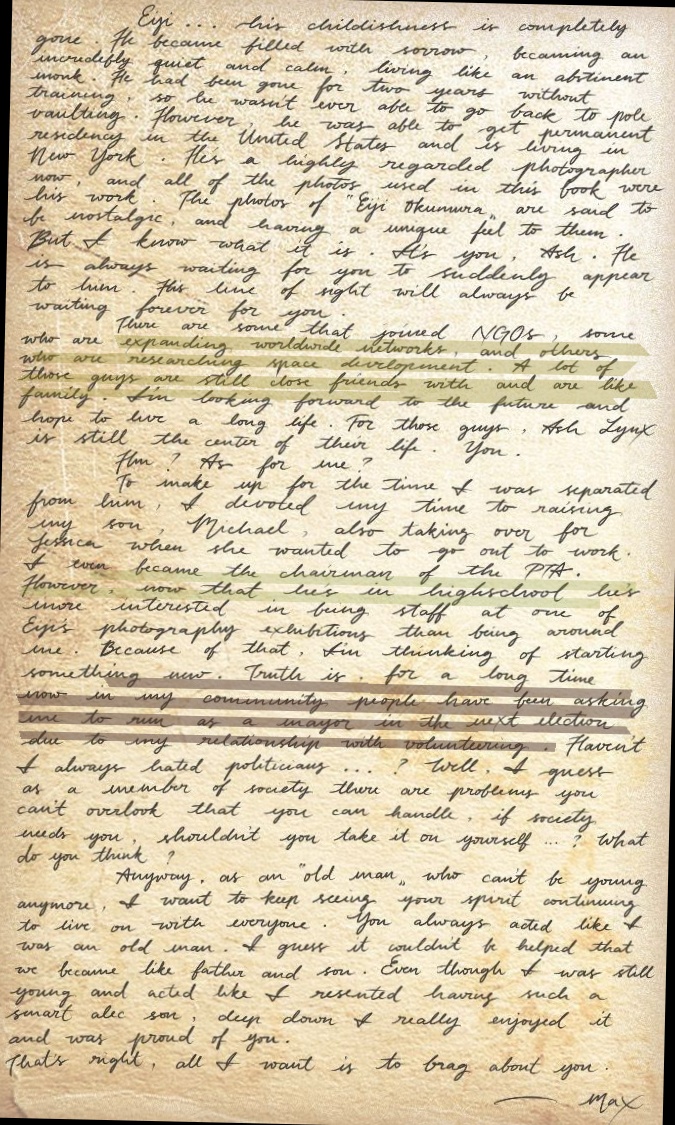 Eiji ... his childishness is completely
gone. He became filled with sorrow, becoming an
incredibly quiet and calm, living like an abstinent
monk. He had been gone for two years without
training, so he wasn't ever able to go back to pole
vaulting. However, he was able to get permanent
residency in the United States and is living in
New York. He's a highly regarded photographer
now, and all of the photos used in this book were
his work. The photos of "Eiji Okumura„ are said to
be nostalgic, and having a unique feel to them.
But I know what it is. It's you, Ash. He
is always waiting for you to suddenly appear
to him. His line of sight will always be
waiting forever for you.
There are some that joined NGOs, some
who are expanding worldwide networks, and others
who are researching space development. A lot of
those guys are still close friends with and are like
family. I'm looking forward to the future and
hope to live a long life. For those guys, Ash Lynx
is still the center of their life. You.
Hm? As for me?
To make up for the time I was separated
from him, I devoted my time to raising
my son, Michael, also taking over for
Jessica when she wanted to go out to work.
I even became the chairman of the PTA.
However, now that he's in highschool he's
more interested in being staff at one of
Eiji's photography exhibitions than being around
me. Because of that, I'm thinking of starting
something new. Truth is, for a long time
now in my community people have been asking
me to run as a mayor in the next election
due to my relationship with volunteering. Haven't
I always hated politicians ... ? Well, I guess
as a member of society there are problems you
can't overlook that you can handle, if society
needs you, shouldn't you take it on yourself ... ? What
do you think?
Anyway, as an "old man„ who can't be young
anymore, I want to keep seeing your spirit continuing
to live on with everyone. You always acted like I
was an old man. I guess it couldn't be helped that
we became like father and son. Even though I was still
young and acted like I resented having such a
smart alec son, deep down I really enjoyed it
and was proud of you.
That's right, all I want is to brag about you.
— Max